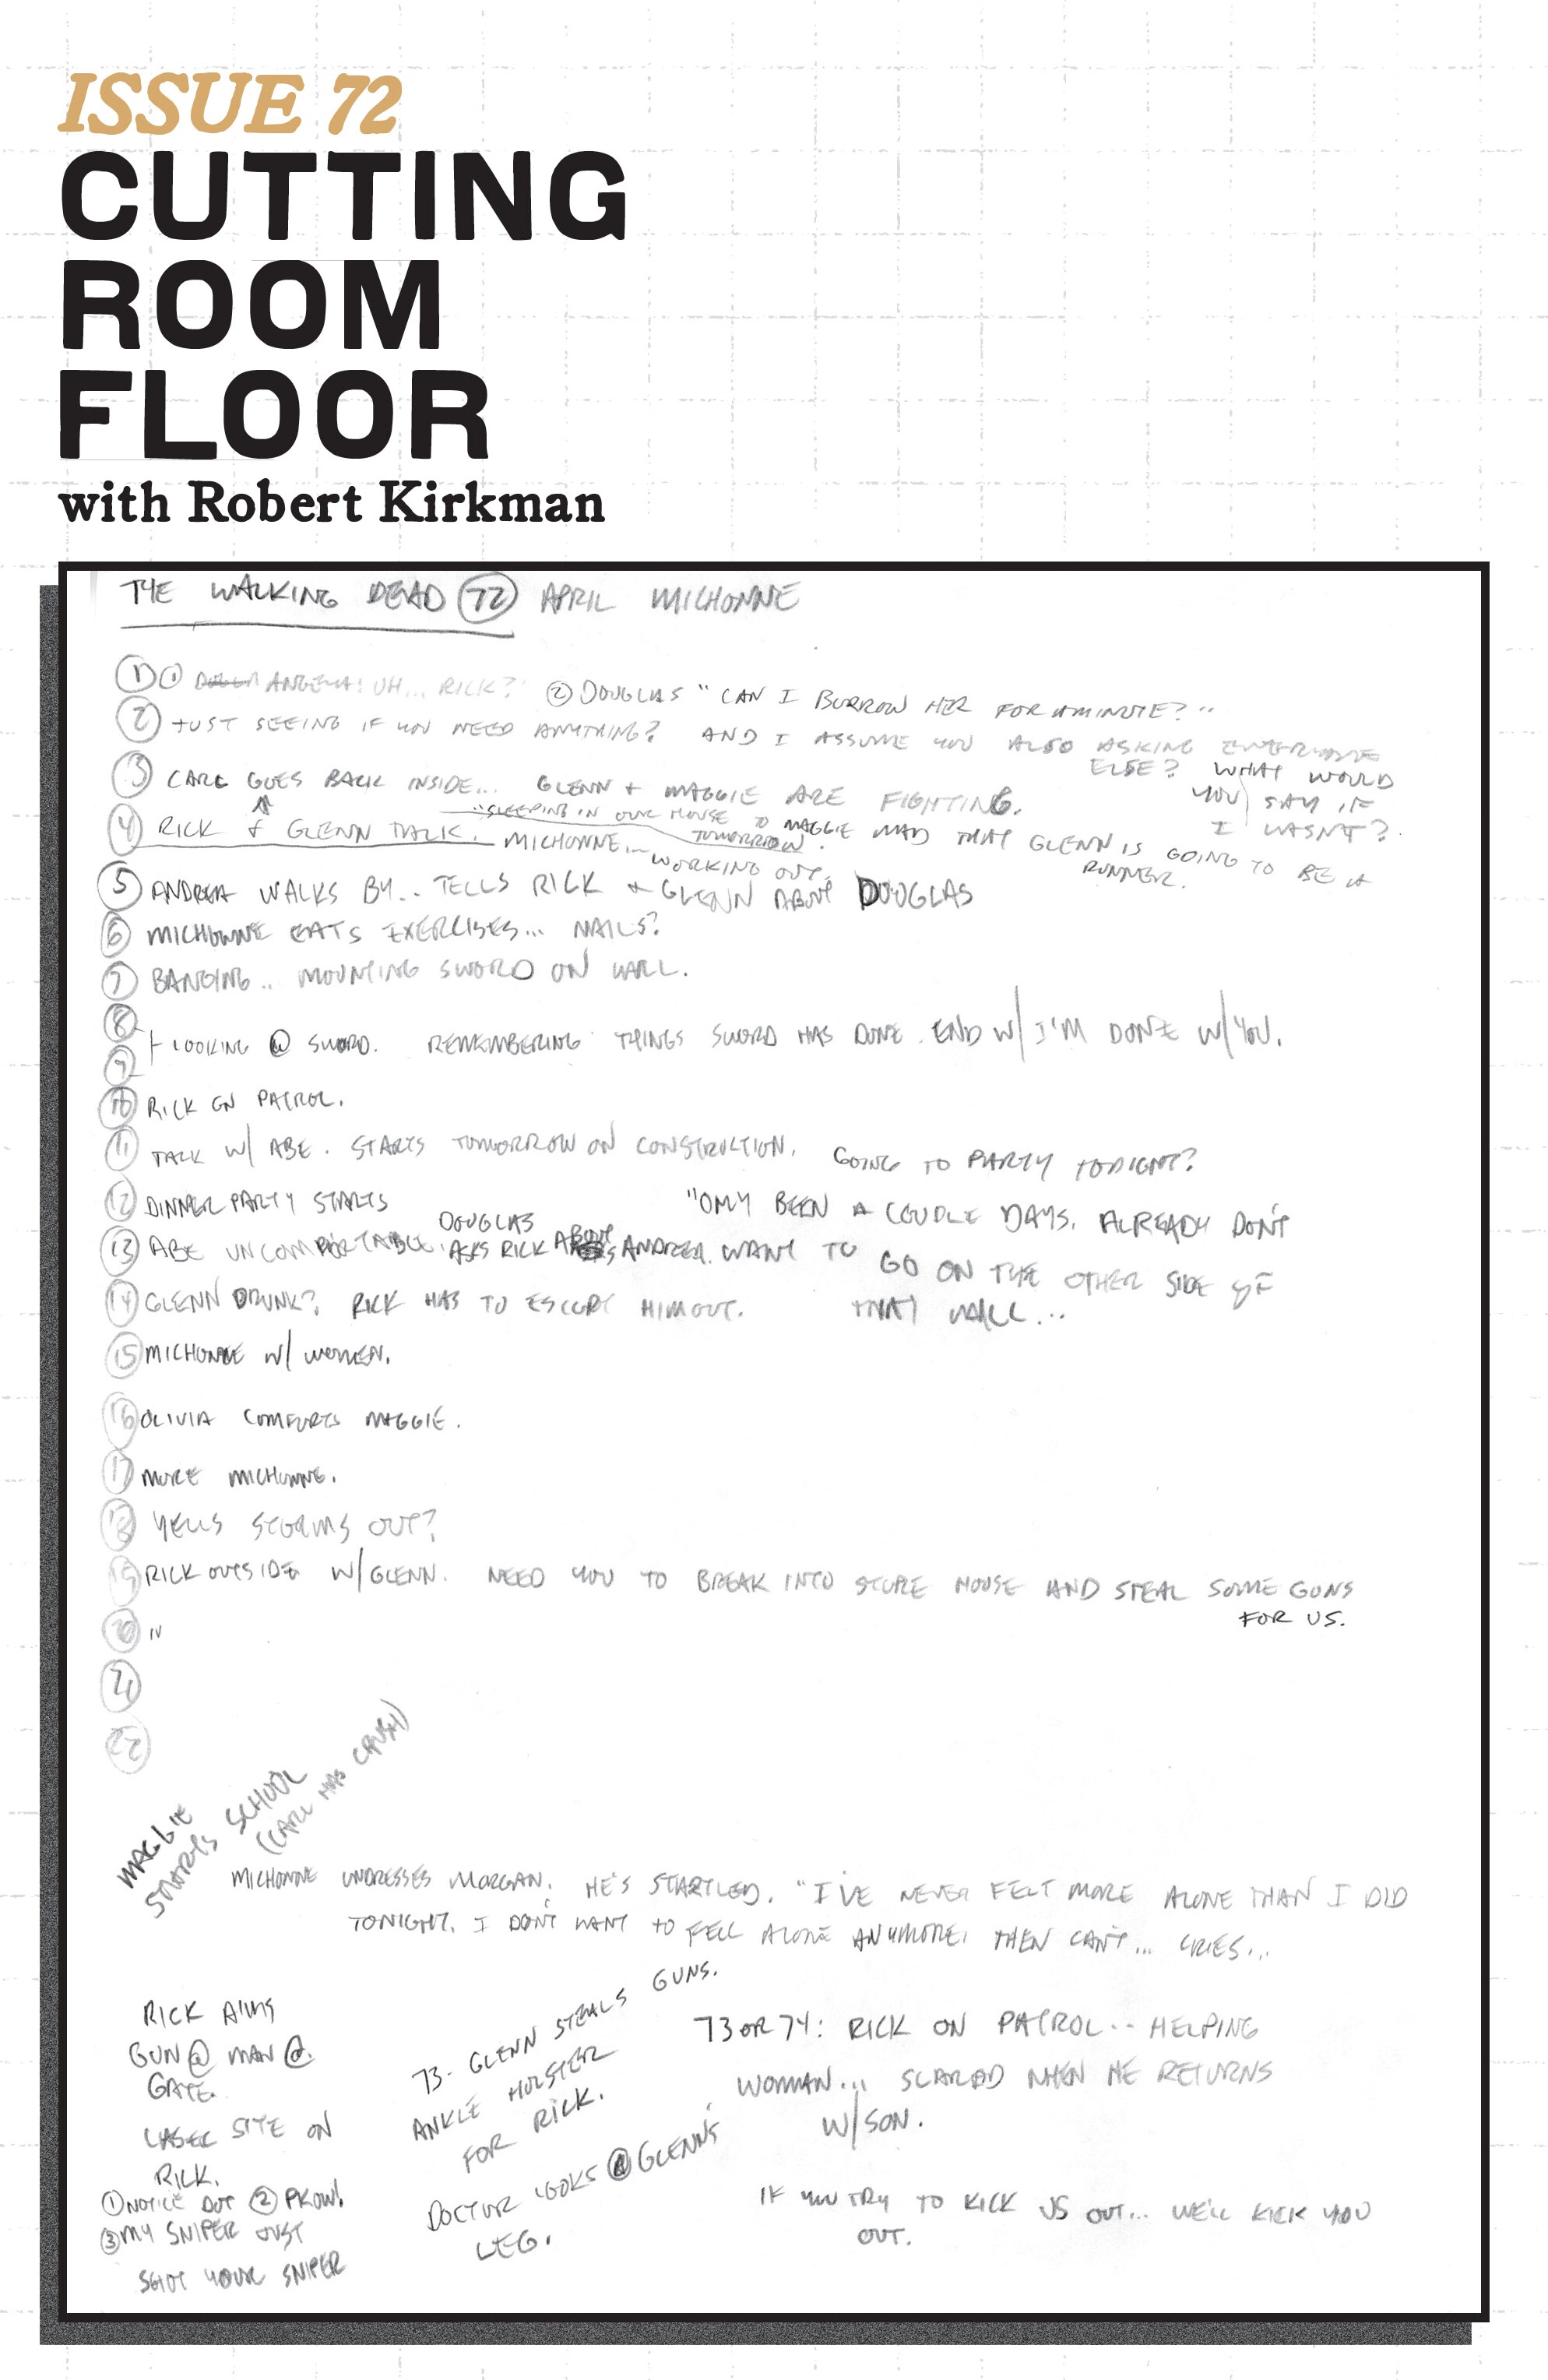 ISSUE 72
CUTTING
ROOM
FLOOR
with Robert Kirkman
THE WALKING DEAD 72 APRIL MICHONNE
1 1 ANGELA: UH... RICK? 2 DOUGLAS "CAN I BURROW HER FOR A MINUTE?"
2 JUST SEEING IF YOU NEED ANYTHING? AND I ASSUME YOU ALSO ASKING EVERYONE
ELSE? WHAT WOULD
YOU SAY IF
I WASN'T?
3 CARL GOES BACK INSIDE... GLENN + MAGGIE ARE FIGHTING.
"SLEEPING IN OUR HOUSE TO
TOMORROW.
4 RICK & GLENN TALK. MICHONNE... MAGGIE MAD THAT GLENN IS GOING TO BE A
WORKING OUT. RUNNER.
5 ANDREA WALKS BY... TELLS RICK + GLENN ABOUT DOUGLAS
6 MICHONNE EATS EXERCISES... NAILS?
7 BANGING... MOUNTING SWORD ON WALL.
8
9 LOOKING @ SWORD. REMEMBERING THINGS SWORD HAS DONE. END W/ I'M DONE W/ YOU.
10 RICK ON PATROL.
11 TALK W/ ABE. STARTS TOMORROW ON CONSTRUCTION. GOING TO PARTY TONIGHT?
12 DINNER PARTY STARTS
"ONLY BEEN A COUPLE DAYS. ALREADY DON'T
WANT TO GO ON THE OTHER SIDE OF
THAT WALL...
13 ABE UNCOMPORTABLE. DOUGLAS ASKS RICK ABOUT ANDREA.
14 GLENN DRUNK? RICK HAS TO ESCORT HIM OUT.
15 MICHONNE W/ WOMEN.
16 OLIVIA COMFORTS MAGGIE.
17 MORE MICHONNE.
18 YELLS STORMS OUT?
19 RICK OUTSIDE W/ GLENN. NEED YOU TO BREAK INTO STORE HOUSE AND STEAL SOME GUNS
FOR US.
20 "
21
22
MAGGIE
STARTS SCHOOL
(CARL HAS CRUSH)
MICHONNE UNDRESSES MORGAN. HE'S STARTLED. "I'VE NEVER FELT MORE ALONE THAN I DID
TONIGHT. I DON'T WANT TO FELL ALONE ANYMORE. THEN CAN'T... CRIES...
RICK AIMS
GUN @ MAN @
GATE.
LASER SITE ON
RICK.
1 NOTICE DOT 2 PKOW!
3 MY SNIPER JUST
SHOT YOUR SNIPER
73- GLENN STEALS GUNS.
ANKLE HOLSTER
FOR RICK.
DOCTOR LOOKS @ GLENN'S
LEG.
73 OR 74: RICK ON PATROL... HELPING
WOMAN... SCARED WHEN HE RETURNS
W/ SON.
IF YOU TRY TO KICK US OUT... WE'LL KICK YOU
OUT.